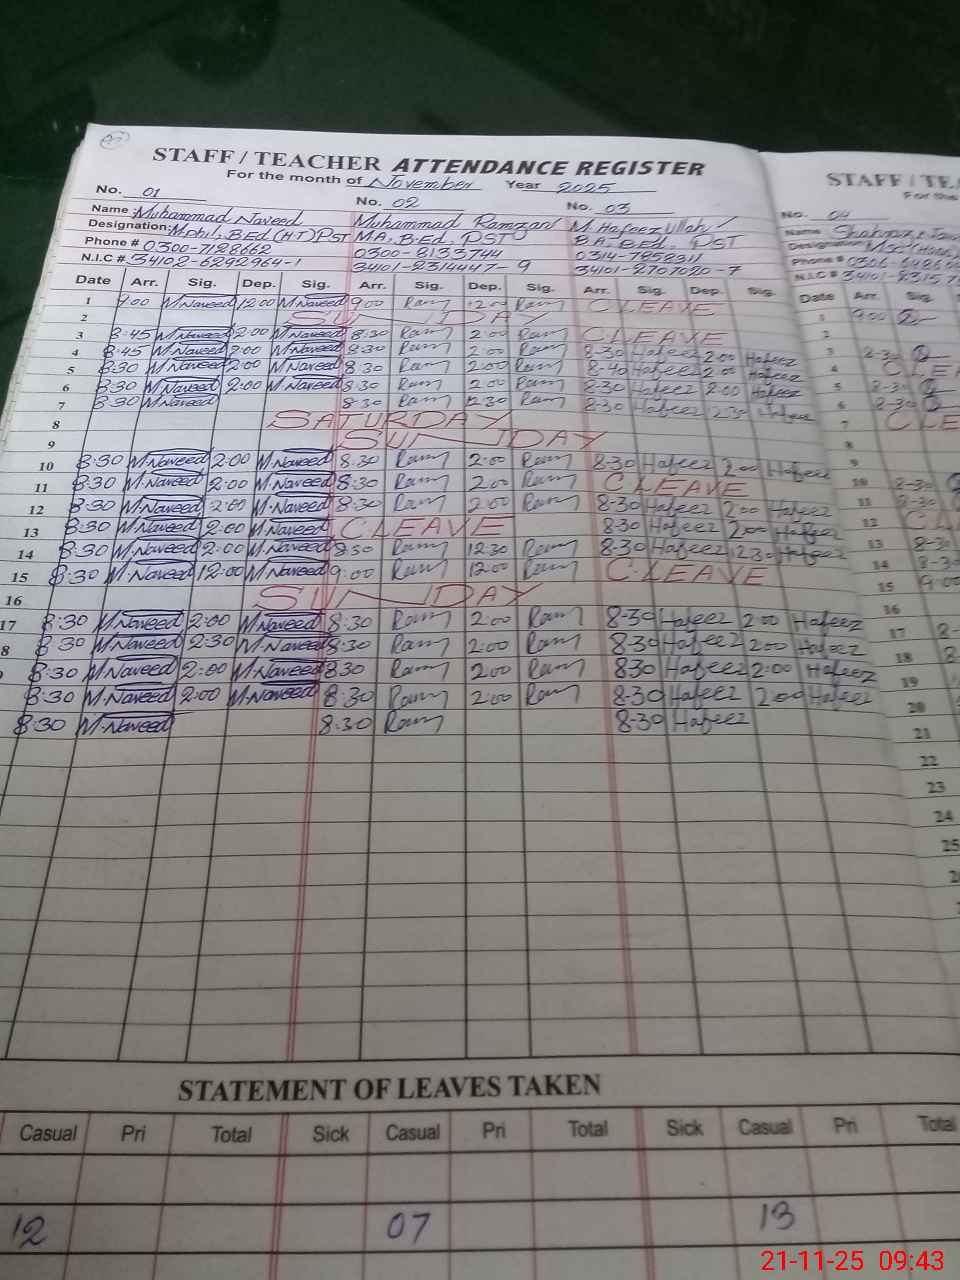 STAFF / TEACHER ATTENDANCE REGISTER
For the month of November Year 2025
No. 01 No. 02 No. 03
Name Muhammad Naveed Muhammad Ramzan M. Hafeez Ullah
Designation MPhil, B.Ed (H.T) PST M.A, B.Ed, PST B.A, B.Ed, PST
Phone # 0300-7128662 0300-8133744 0314-7858311
N.I.C # 34102-6292964-1 34101-2314447-9 34101-2707020-7
Date Arr. Sig. Dep. Sig. Arr. Sig. Dep. Sig. Arr. Sig. Dep. Sig.
1 9.00 M.Naveed 12.00 M.Naveed 9.00 Ram 12.00 Ram C.LEAVE
2 SUNDAY
3 8:45 M.Naveed 2:00 M.Naveed 8:30 Ram 2:00 Ram C.LEAVE
4 8:45 M.Naveed 2:00 M.Naveed 8:30 Ram 2:00 Ram 8-30 Hafeez 2:00 Hafeez
5 8:30 M.Naveed 2:00 M.Naveed 8:30 Ram 2:00 Ram 8-40 Hafeez 2:00 Hafeez
6 8:30 M.Naveed 2:00 M.Naveed 8:30 Ram 2:00 Ram 8-30 Hafeez 2:00 Hafeez
7 8:30 M.Naveed 8:30 Ram 12:30 Ram 8-30 Hafeez 12:30 Hafeez
8 SATURDAY
9 SUNDAY
10 8:30 M.Naveed 2:00 M.Naveed 8:30 Ram 2:00 Ram 8-30 Hafeez 2:00 Hafeez
11 8:30 M.Naveed 2:00 M.Naveed 8:30 Ram 2:00 Ram C.LEAVE
12 8:30 M.Naveed 2:00 M.Naveed 8:30 Ram 2:00 Ram 8-30 Hafeez 2:00 Hafeez
13 8:30 M.Naveed 2:00 M.Naveed C.LEAVE 8-30 Hafeez 2:00 Hafeez
14 8:30 M.Naveed 2:00 M.Naveed 8:30 Ram 12:30 Ram 8-30 Hafeez 12:30 Hafeez
15 8:30 M.Naveed 12:00 M.Naveed 9:00 Ram 12:00 Ram C.LEAVE
16 SUNDAY
17 8:30 M.Naveed 2:00 M.Naveed 8:30 Ram 2:00 Ram 8-30 Hafeez 2:00 Hafeez
8 8:30 M.Naveed 2:30 M.Naveed 8:30 Ram 2:00 Ram 8-30 Hafeez 2:00 Hafeez
8:30 M.Naveed 2:00 M.Naveed 8:30 Ram 2:00 Ram 8:30 Hafeez 2:00 Hafeez
8:30 M.Naveed 2:00 M.Naveed 8:30 Ram 2:00 Ram 8-30 Hafeez 2:00 Hafeez
8:30 M.Naveed 8:30 Ram 8-30 Hafeez
STATEMENT OF LEAVES TAKEN
Casual Pri Total Sick Casual Pri Total Sick Casual Pri Total
12 07 13
STAFF / TEA
For the
No. 04
Name
Designation
Phone #
N.I.C #
Date Arr. Sig.
1 9:00
2
3 8-30
4 C.LE
5 8-30
6 8-30
7 C.LE
8
9
10 8-30
11 8-30
12
13 8-30
14 8-30
15 9:00
16
17
18
19
20
21
22
23
24
25
21-11-25 09:43